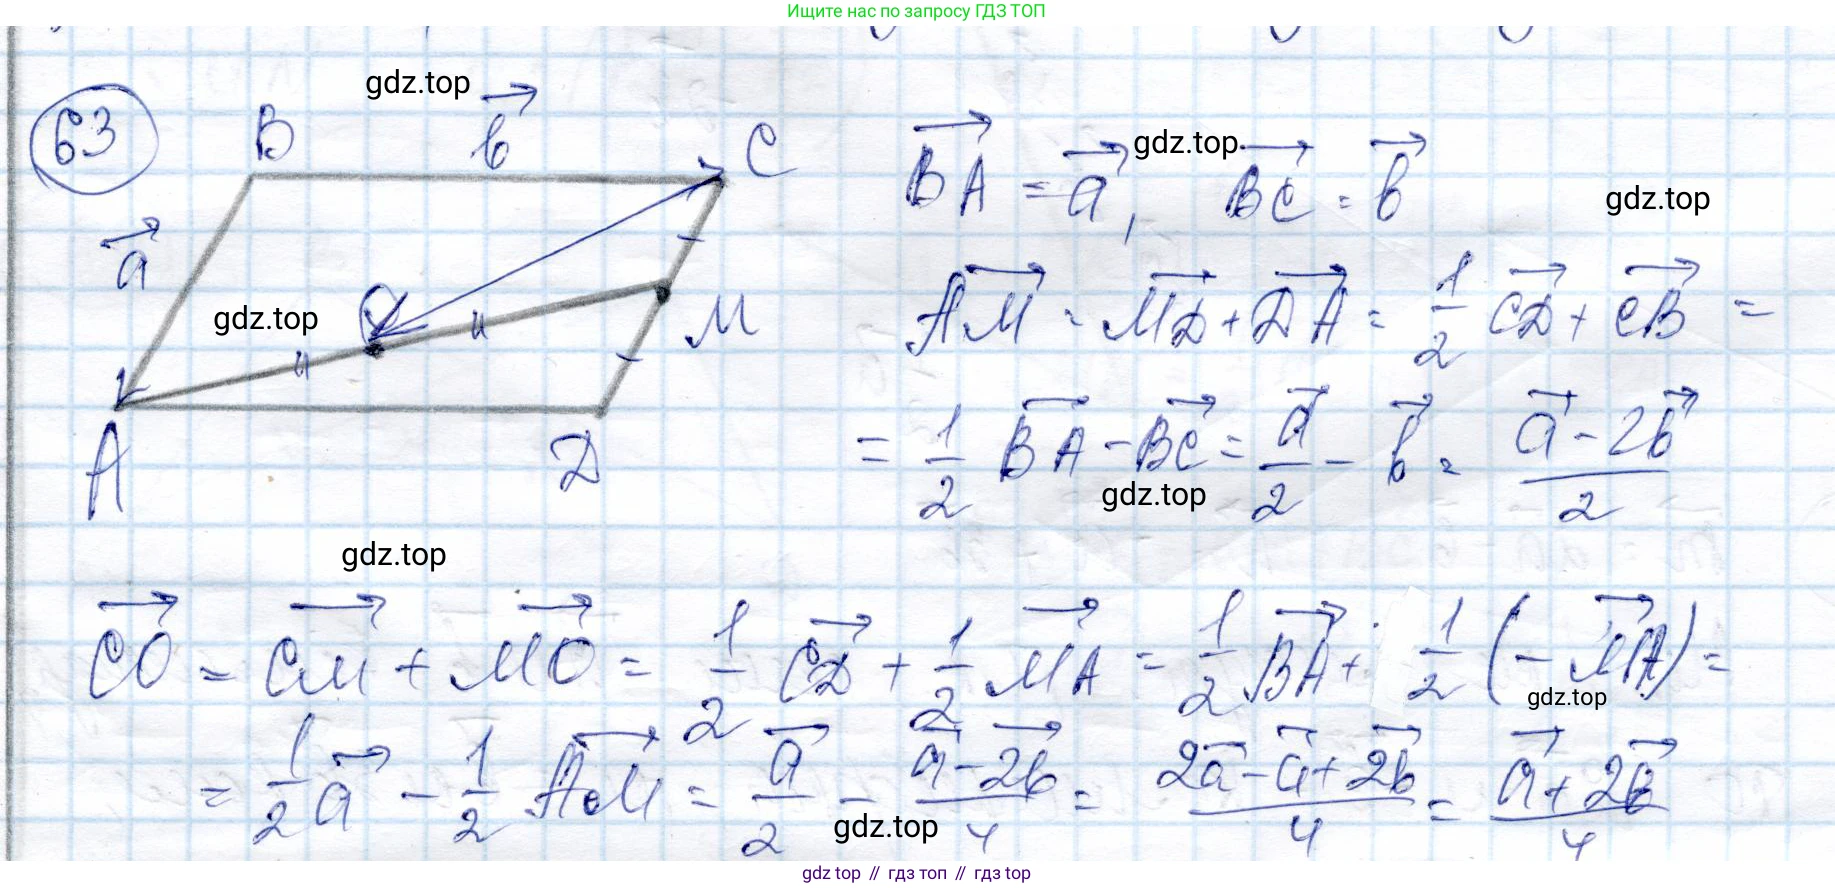 Ищите нас по запросу ГДЗ ТОП
63
gdz.top
B
b⃗
C
a⃗
gdz.top
O
M
A
D
BA⃗ = a⃗, BC⃗ = b⃗
gdz.top
gdz.top
AM⃗ = MD⃗ + DA⃗ = 1/2 CD⃗ + CB⃗ =
= 1/2 BA⃗ - BC⃗ = a⃗/2 - b⃗ = (a⃗ - 2b⃗)/2
gdz.top
gdz.top
CO⃗ = CM⃗ + MO⃗ = 1/2 CD⃗ + 1/2 MA⃗ = 1/2 BA⃗ + 1/2 (- MA⃗) =
gdz.top
= 1/2 a⃗ - 1/2 AM⃗ = a⃗/2 - (a⃗ - 2b⃗)/4 = (2a⃗ - a⃗ + 2b⃗)/4 = (a⃗ + 2b⃗)/4
gdz.top
gdz top // гдз топ // гдз top